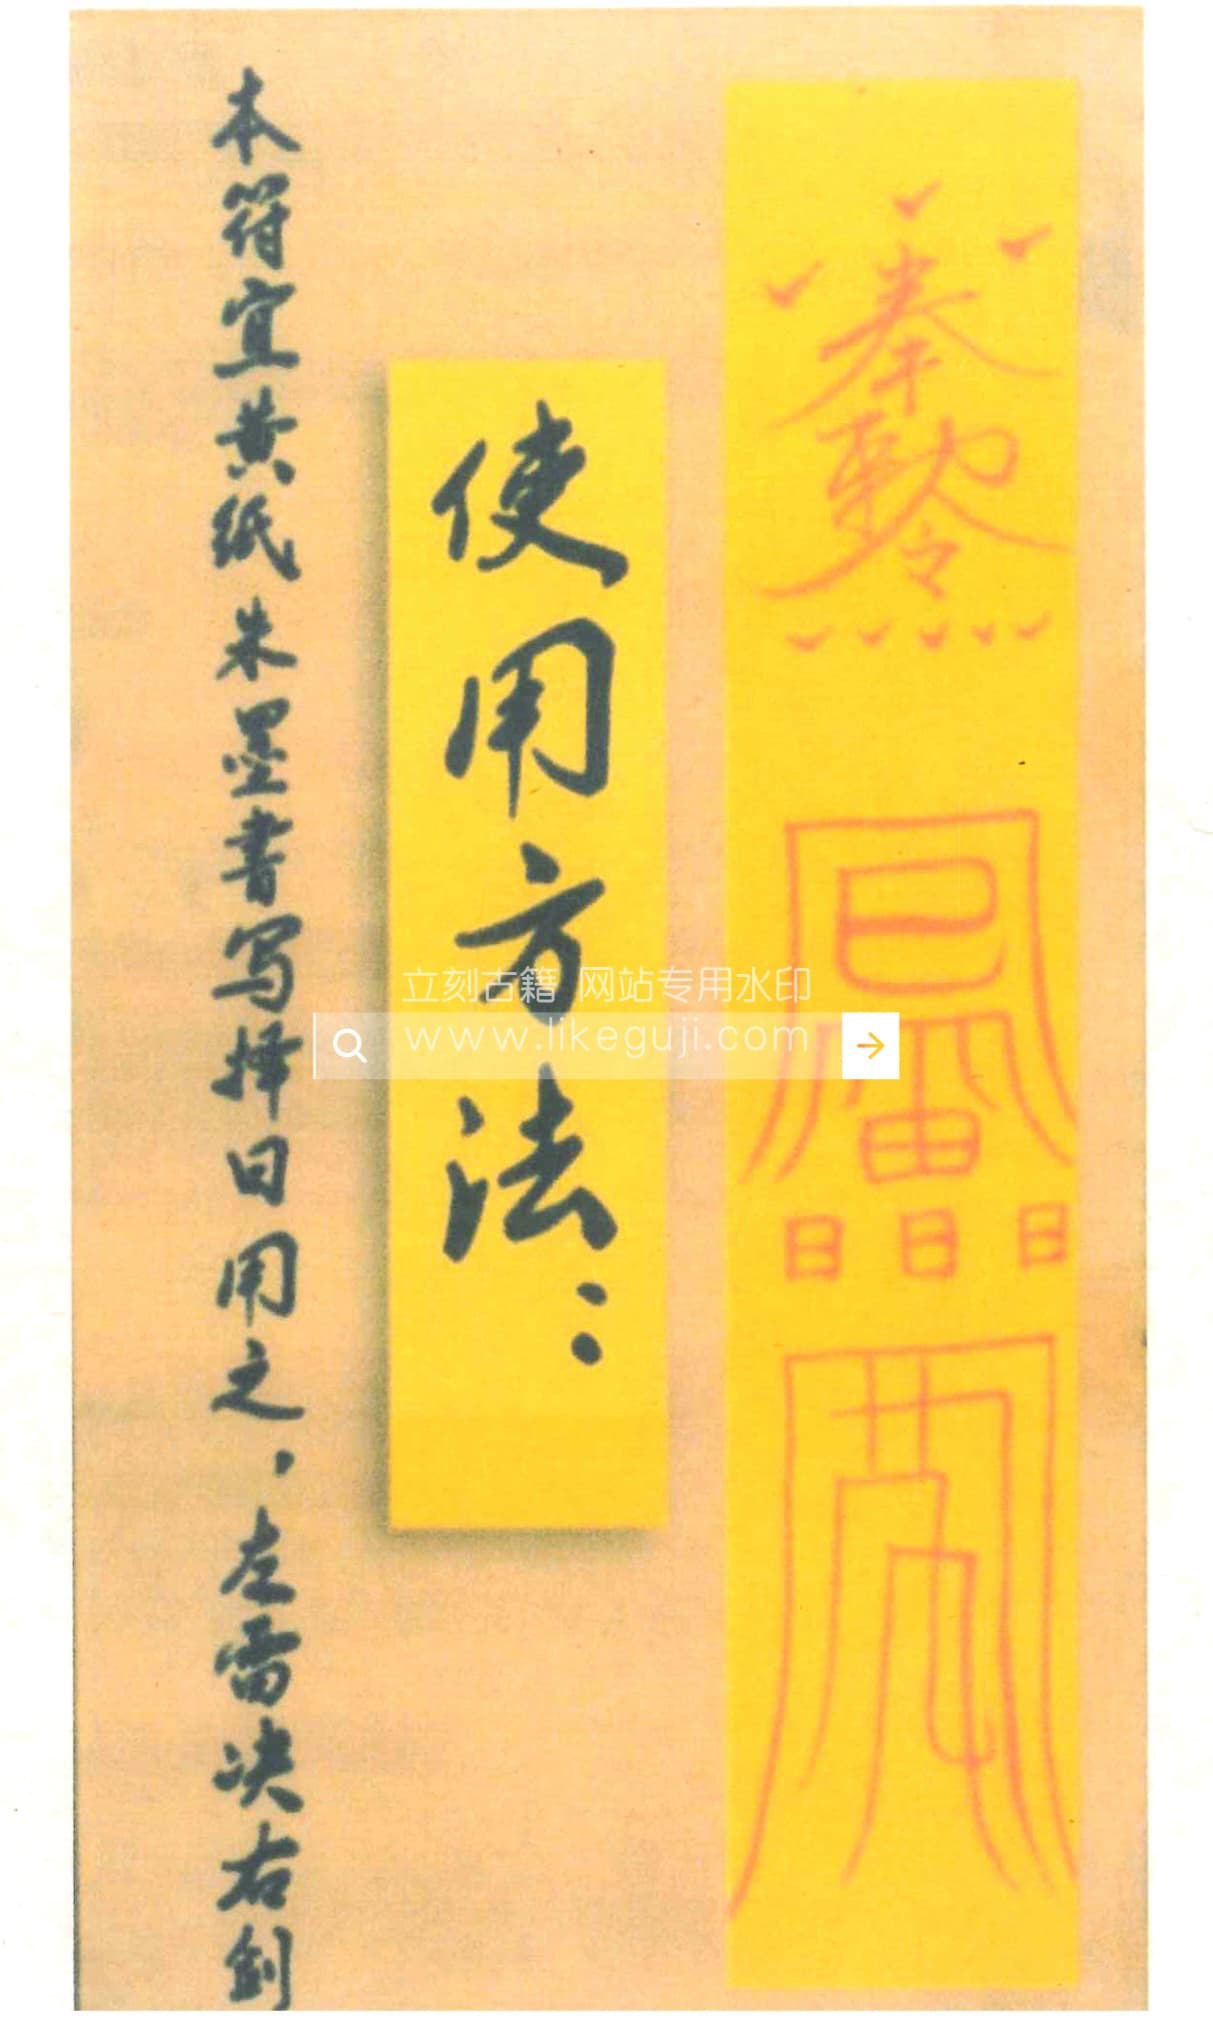 奉敕令
日日日
使用方法：
本符宜黄纸朱墨书写择日用之，左雷决右剑
立刻古籍 网站专用水印
www.likeguji.com